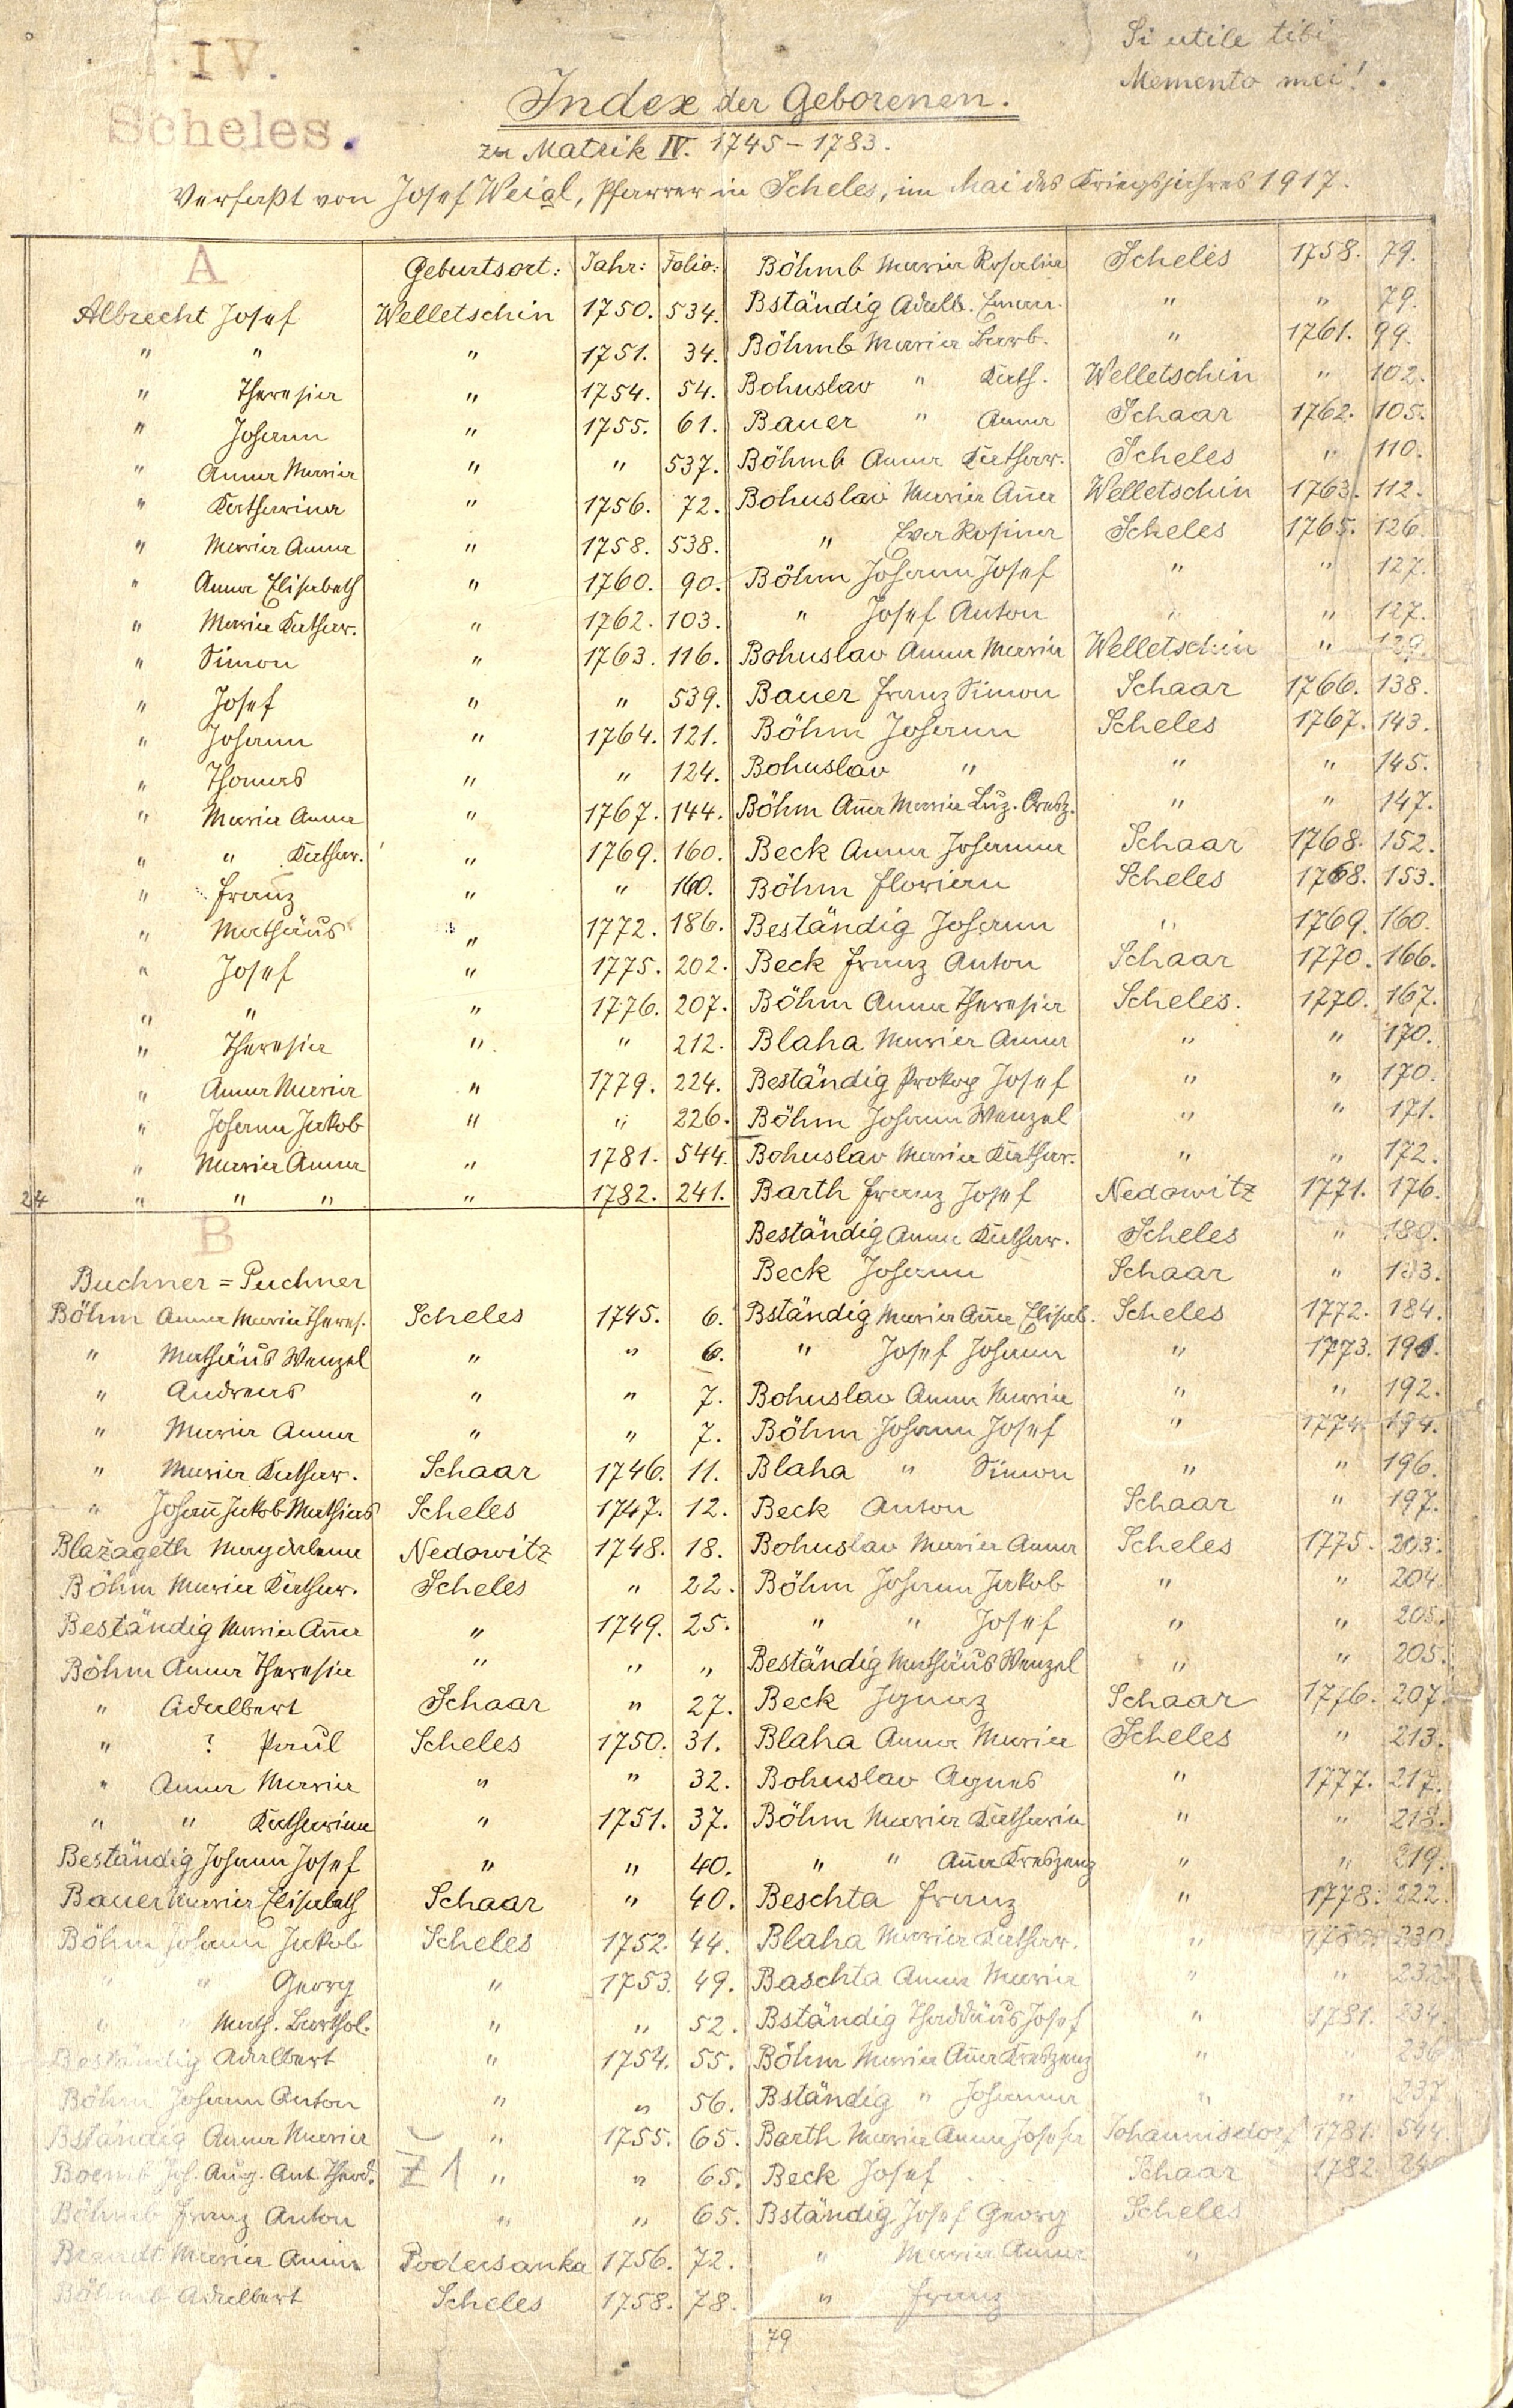 IV.
Scheles.
Si utile tibi
Memento mei!
Index der Geborenen.
zu Matrik IV. 1745 – 1783.
Verfaßt von Josef Weigl, Pfarrer in Scheles, im Mai des Kriegsjahres 1917.
A Geburtsort: Jahr: Folio:
Albrecht Josef Welletschin 1750. 534.
" " " 1751. 34.
" Theresia " 1754. 54.
" Johann " 1755. 61.
" Anna Maria " " 537.
" Katharina " 1756. 72.
" Maria Anna " 1758. 538.
" Anna Elisabeth " 1760. 90.
" Maria Kathar. " 1762. 103.
" Simon " 1763. 116.
" Josef " " 539.
" Johann " 1764. 121.
" Thomas " " 124.
" Maria Anna " 1767. 144.
" " Kathar. " 1769. 160.
" Franz " " 160.
" Mathäus " 1772. 186.
" Josef " 1775. 202.
" " " 1776. 207.
" Theresia " " 212.
" Anna Maria " 1779. 224.
" Johann Jakob " " 226.
" Maria Anna " 1781. 544.
24 " " " " 1782. 241.
B
Buchner = Puchner
Böhm Anna Maria Theres. Scheles 1745. 6.
" Mathäus Wenzel " " 6.
" Andreas " " 7.
" Maria Anna " " 7.
" Maria Kathar. Schaar 1746. 11.
" Johañ Jakob Mathias Scheles 1747. 12.
Blažageth Magdalena Nedowitz 1748. 18.
Böhm Maria Kathar. Scheles " 22.
Beständig Maria Aña " 1749. 25.
Böhm Anna Theresia " " "
" Adalbert Schaar " 27.
" ? Paul Scheles 1750. 31.
" Anna Maria " " 32.
" " Katharina " 1751. 37.
Beständig Johann Josef " " 40.
Bauer Maria Elisabeth Schaar " 40.
Böhm Johann Jakob Scheles 1752. 44.
" " Georg " 1753. 49.
" " Math. Barthol. " " 52.
Beständig Adalbert " 1754. 55.
Böhm Johann Anton " " 56.
Bständig Anna Maria " 1755. 65.
Boemb Joh. Aug. Ant. Thad. " " 65.
Böhmb Franz Anton " " 65.
Brandt Maria Anna Podersanka 1756. 72.
Böhmb Adalbert Scheles 1758. 78.
Böhmb Maria Rosalia Scheles 1758. 79.
Bständig Adalb. Eman. " " 79.
Böhmb Maria Barb. " 1761. 99.
Bohuslav " Kath. Welletschin " 102.
Bauer " Anna Schaar 1762. 105.
Böhmb Anna Kathar. Scheles " 110.
Bohuslav Maria Aña Welletschin 1763. 112.
" Eva Rosina Scheles 1765. 126.
Böhm Johann Josef " " 127.
" Josef Anton " " 127.
Bohuslav Anna Maria Welletschin " 129.
Bauer Franz Simon Schaar 1766. 138.
Böhm Johann Scheles 1767. 143.
Bohuslav " " " 145.
Böhm Aña Maria Luz. " " 147.
Beck Anna Johanna Schaar 1768. 152.
Böhm Florian Scheles 1768. 153.
Beständig Johann " 1769. 160.
Beck Franz Anton Schaar 1770. 166.
Böhm Anna Theresia Scheles. 1770. 167.
Blaha Maria Anna " " 170.
Beständig Prokop Josef " " 170.
Böhm Johann Wenzel " " 171.
Bohuslav Maria Kathar. " " 172.
Barth Franz Josef Nedowitz 1771. 176.
Beständig Anna Kathar. Scheles " 180.
Beck Johann Schaar " 183.
Bständig Maria Aña Elisab. Scheles 1772. 184.
" Josef Johann " 1773.
Bohuslav Anna Maria " " 192.
Böhm Johann Josef " 1774. 194.
Blaha " Simon " " 196.
Beck Anton Schaar " 197.
Bohuslav Maria Anna Scheles 1775. 203.
Böhm Johann Jakob " " 204.
" " Josef " " 205.
Beständig Mathäus Wenzel " " 205.
Beck Ignaz Schaar 1776. 207.
Blaha Anna Maria Scheles " 213.
Bohuslav Agnes " 1777. 217.
Böhm Maria Katharin " " 218.
" " Aña Kreszenz " " 219.
Beschta Franz " 1778. 222.
Blaha Maria Kathar. " 230.
Baschta Anna Maria " " 232.
Bständig Thaddäus Josef " 1781. 234.
Böhm Maria Aña Kreszenz " " 236
Bständig " Johanna " " 237
Barth Maria Anna Josefa Johannisdorf 1781. 544.
Beck Josef Schaar 1782.
Bständig Josef Georg Scheles
" Maria Anna "
" Franz
79